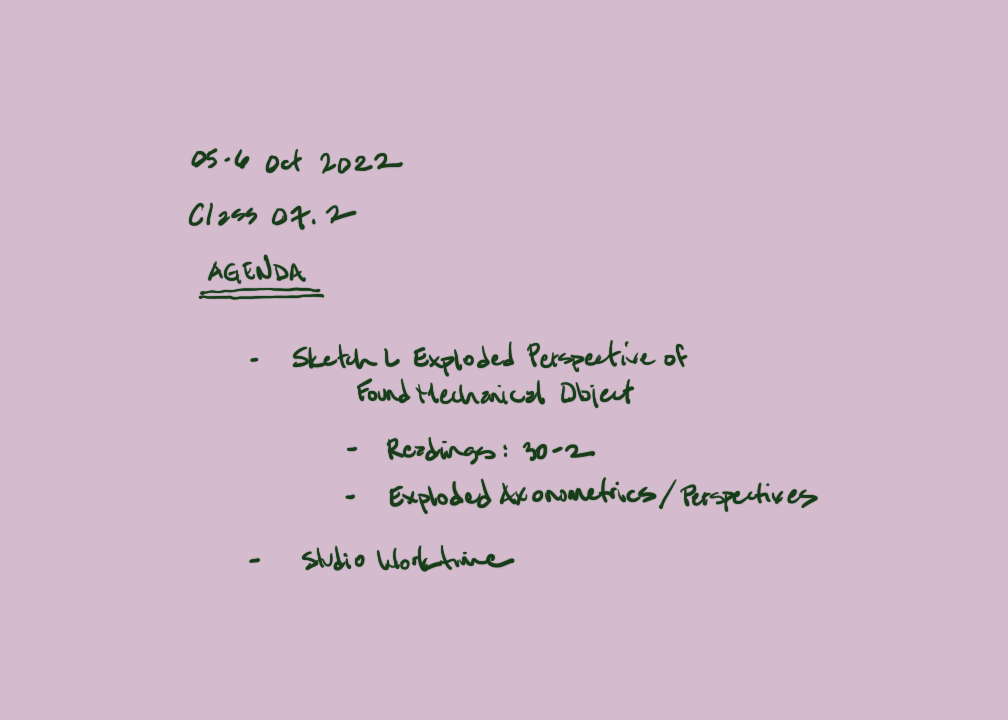 05-6 Oct 2022
Class 07.2
AGENDA
- Sketch L Exploded Perspective of
Found Mechanical Object
- Readings: 30-2
- Exploded Axonometrics/Perspectives
- Studio Worktime